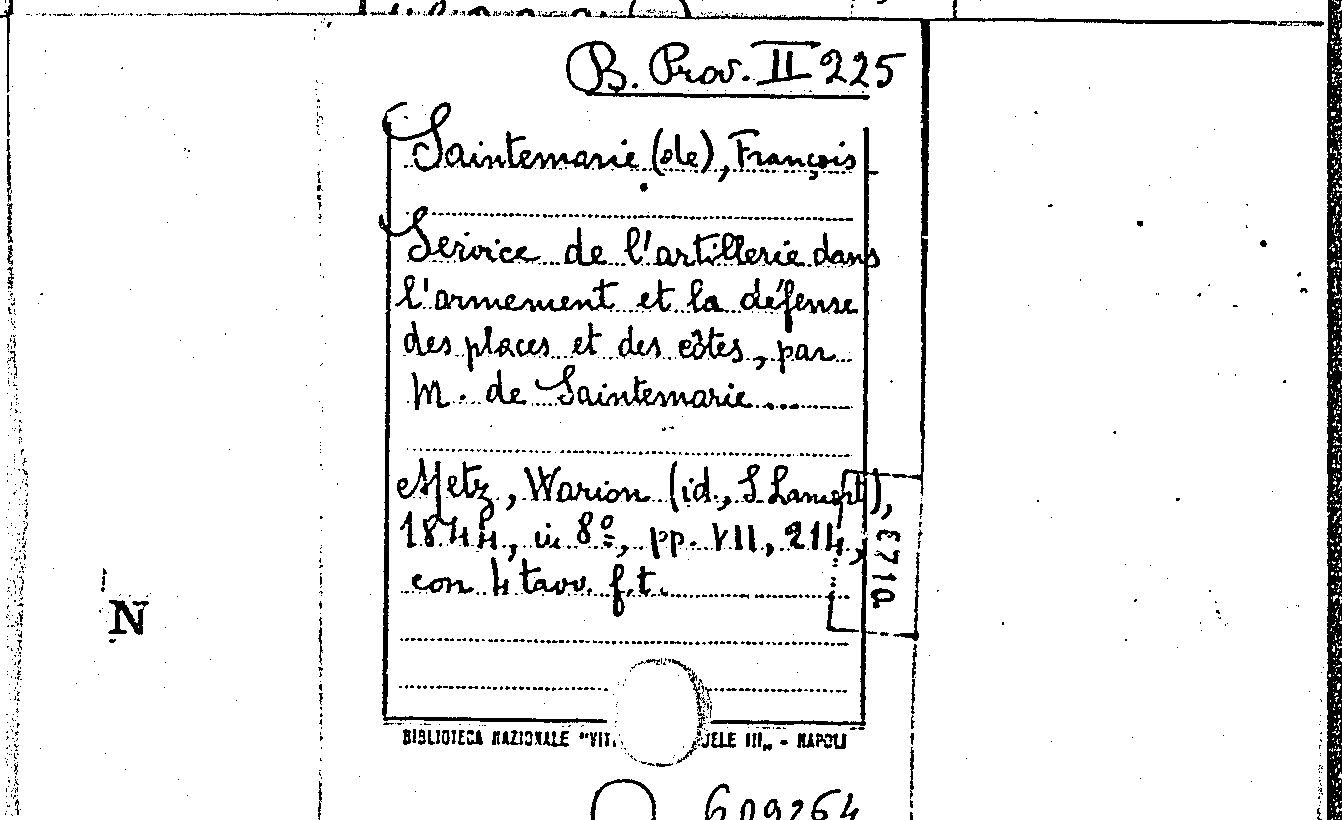 B. Prov. II 225
Saintemarie (de), François
Service de l'artillerie dans
l'armement et la défense
des places et des côtes, par
M. de Saintemarie ...
Metz, Warion (id., S. Lamort),
1844, in 8º, pp. VII, 214,
con 4 tavv. f.t.
N
BIBLIOTECA NAZIONALE "VIT ELE III„ - NAPOLI
609264